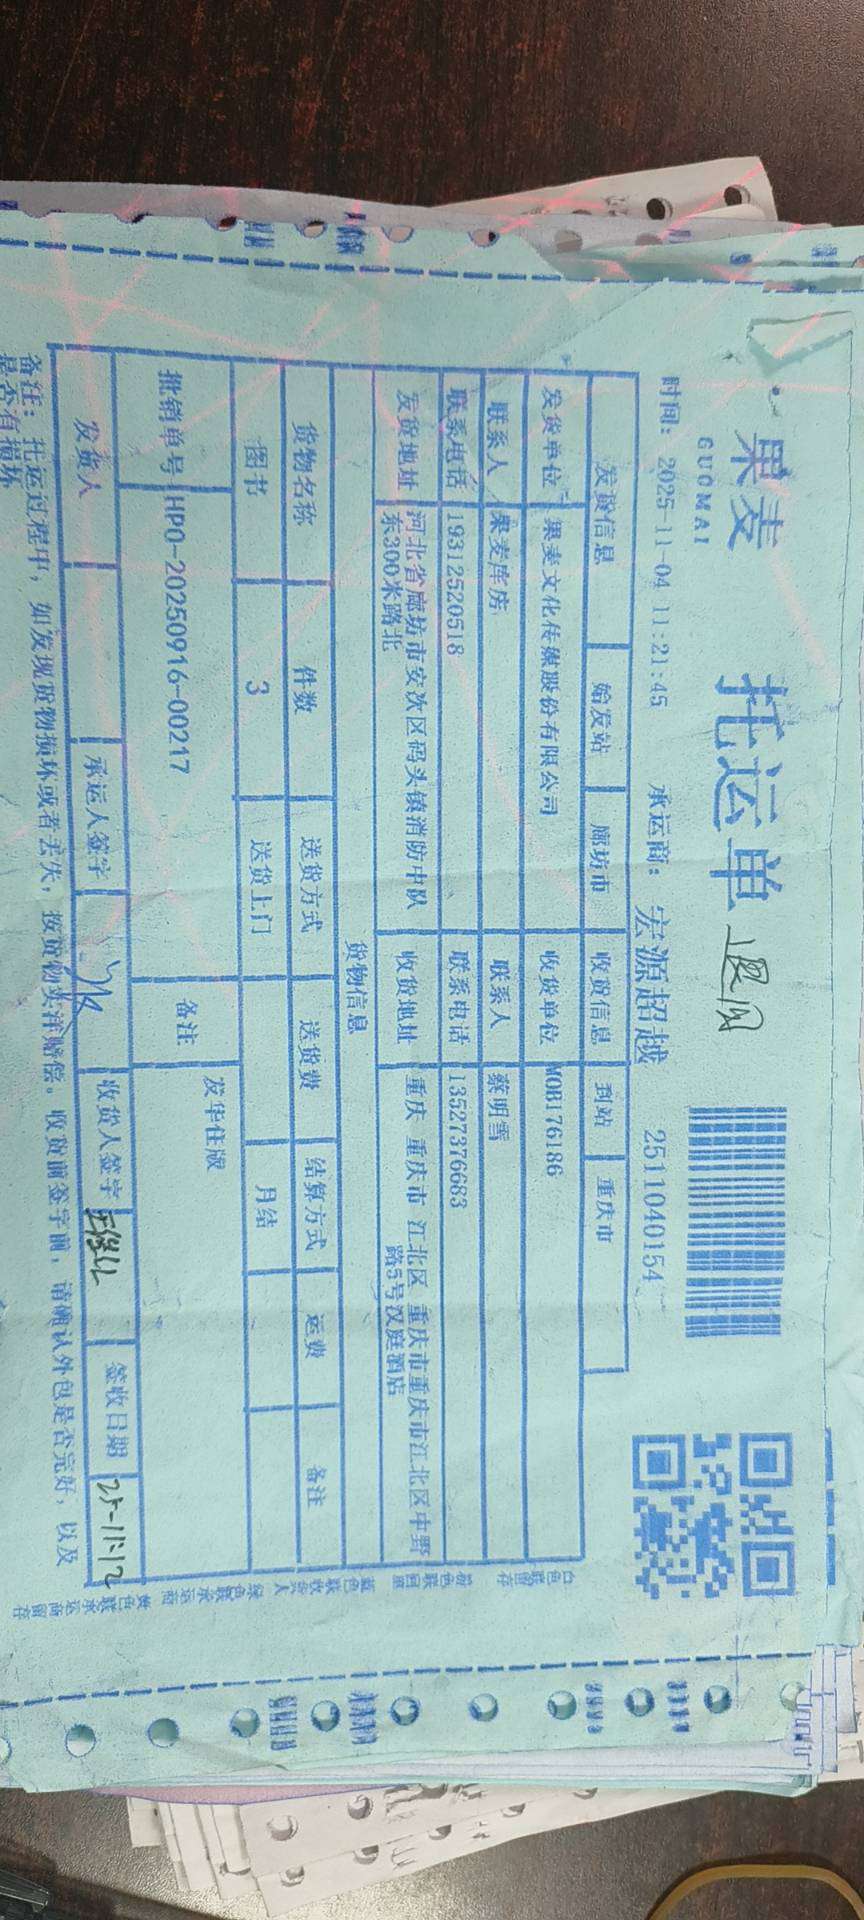 果麦
GUOMAI
托运单
退回
时间: 2025-11-04 11:21:45 承运商: 宏源超越 2511040154
发货信息 始发站 廊坊市 收货信息 到站 重庆市
发货单位 果麦文化传媒股份有限公司 收货单位 MOB176186
联系人 果麦库房 联系人 蔡明雪
联系电话 19312520518 联系电话 13527376683
发货地址 河北省廊坊市安次区码头镇消防中队东300米路北 收货地址 重庆 重庆市 江北区 重庆市重庆市江北区中野路5号汉庭酒店
货物信息
货物名称 件数 送货方式 送货费 结算方式 运费 备注
图书 3 送货上门 月结
批销单号 HPO-20250916-00217 备注 发华住版
发货人 承运人签字 收货人签字 签收日期 25-11-12
备注: 托运过程中, 如发现货物损坏或者丢失, 按货物实洋赔偿。收货前签字前, 请确认外包是否完好, 以及
是否有损坏
白色联留存 粉色联回单 蓝色联收货人 绿色联承运商 黄色联承运商留存